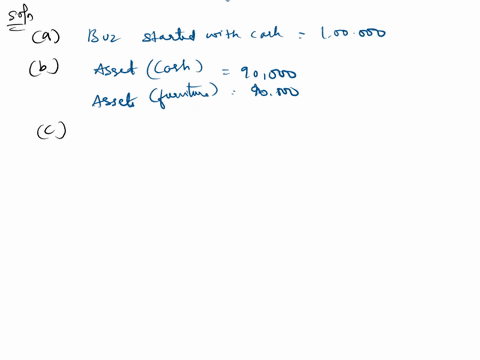 Soln
(a) Buz started with cash = 1.00.000
(b) Asset (Cash) = 90,000
Assets (furniture) = 90.000
(c)